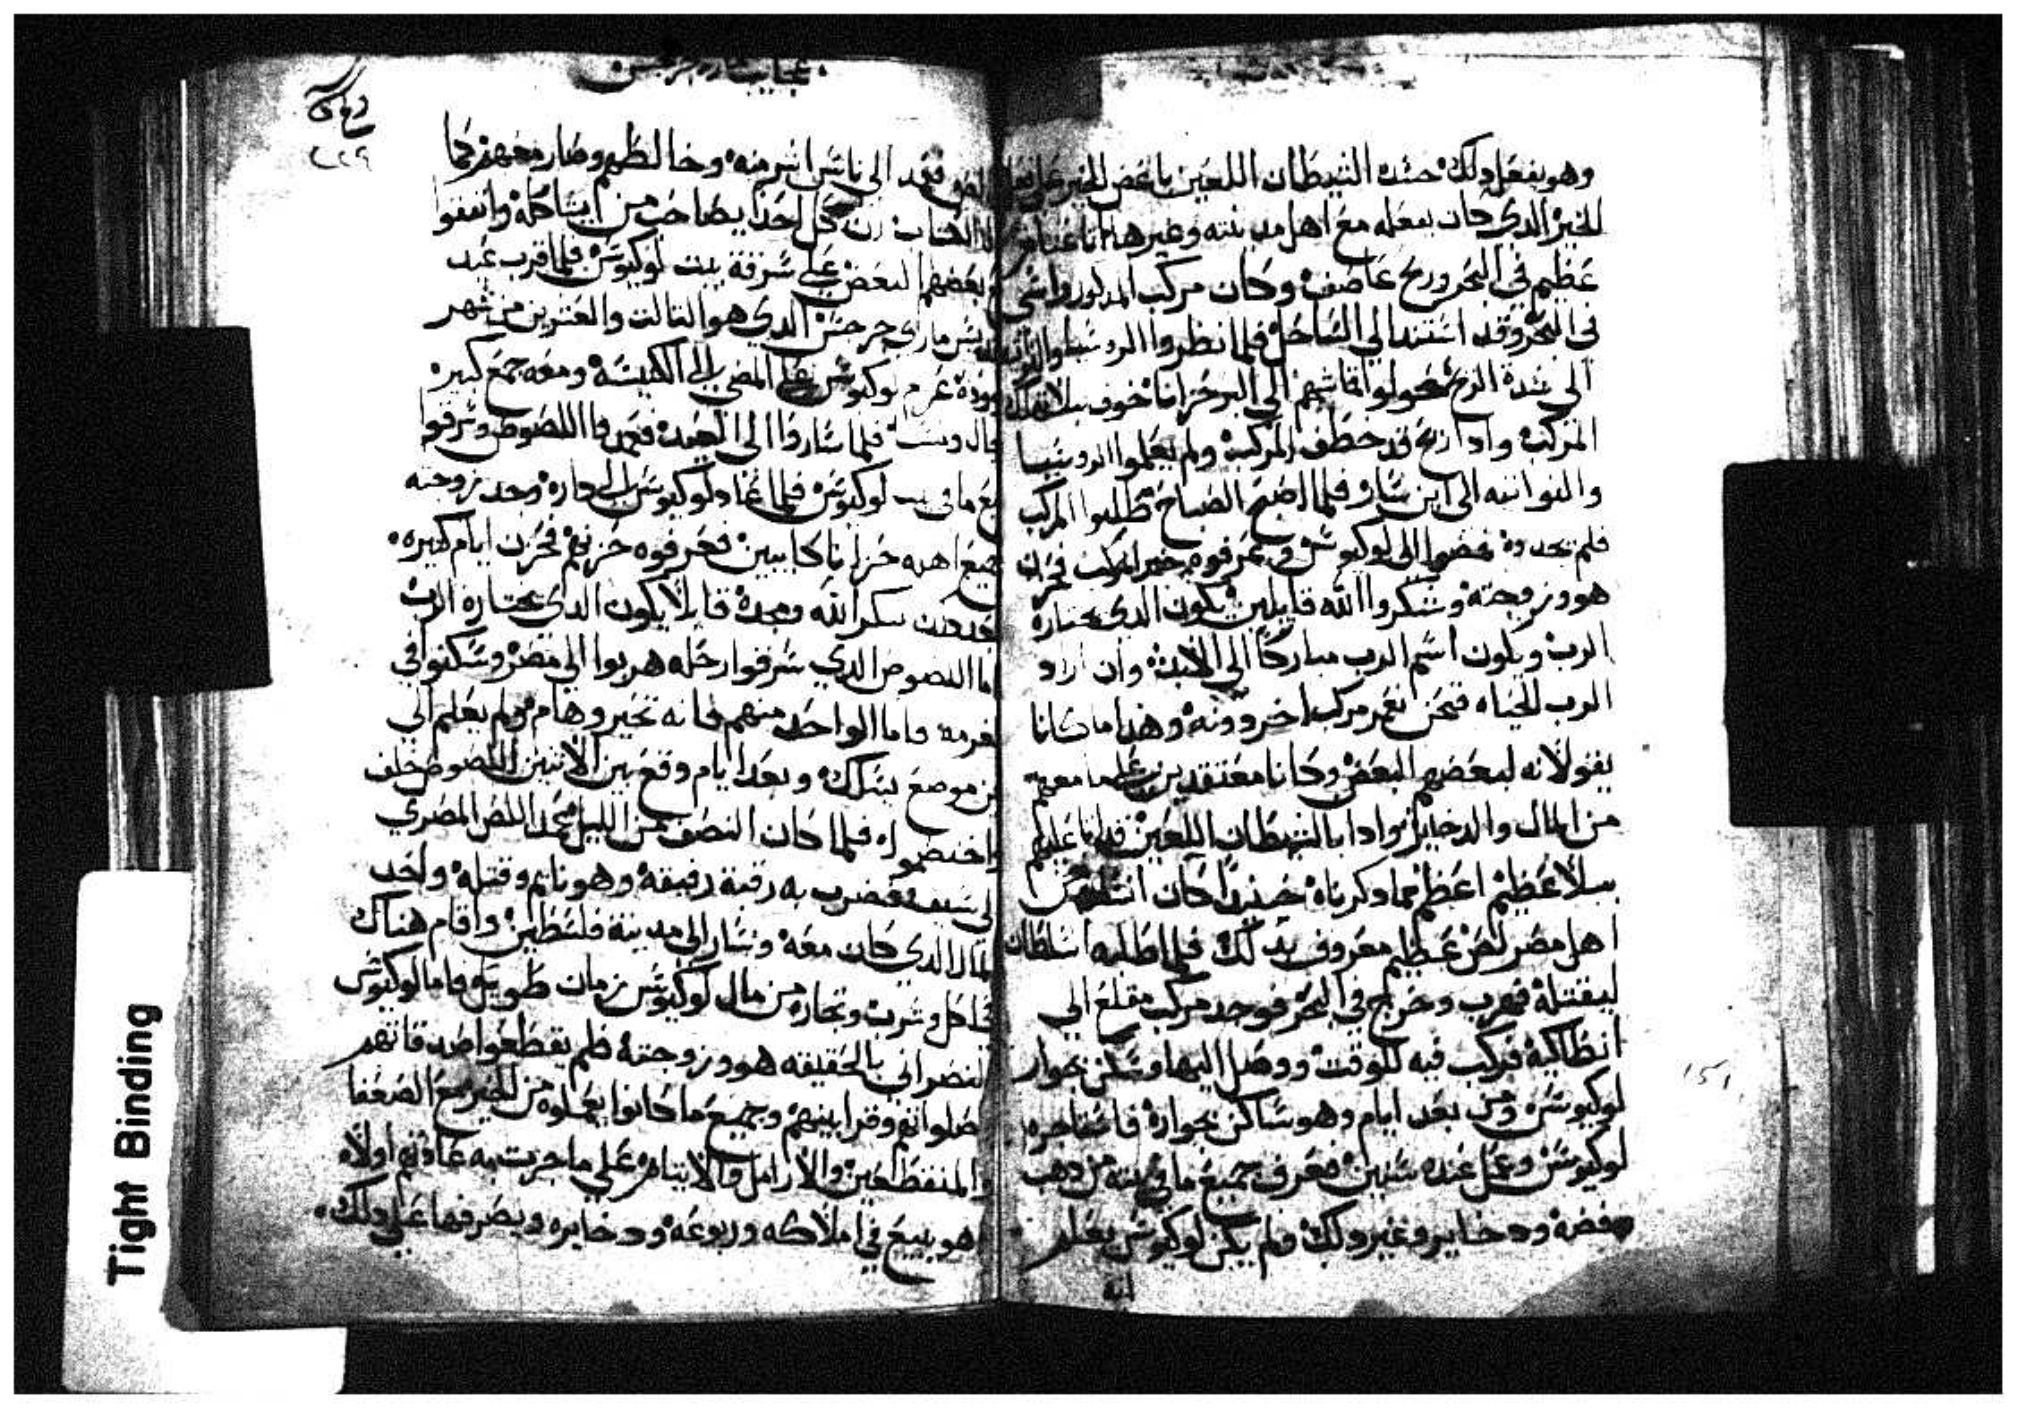 وهو يفعل دلك حسده الشيطان اللعين باغض الخير على فعل
الخير الدي كان يفعله مع اهل مدينته وغيرها
عظيم في البحر وريح عاصف وكان مركب المدكور راسي
في البحر وقد استند الي الساحل فلما نظروا الروسا والنواتيه
الي شدة الريح حولوا اقاشهم الي البر حزانا خوف ليلا تهلك
المركب وادا ريح قد خطف المركب ولم يعلموا الروسا
والنواتيه الي اين سار فلما اصبح الصباح طلبوا المركب
فلم يجدوه فمضوا الي لوكيوس وعرفوه خبر المركب فحزن
هو وزوجته وشكروا الله قايلين يكون الدي يختاره
الرب ويكون اسم الرب مباركا الي الابد وان اراد
الرب الحياه فنحن نعمر مركب اخر دونه وهدا ما كانا
يقولانه لبعضهم البعض وكانا معتقدين علي ما معهم
من المال والدخاير وادا بالشيطان اللعين
ببلا عظيم اعظم مما دكرناه كان انسان من
اهل مصر لص عظيم معروف بدلك فلما طلبه السلطان
ليقتله فهرب وخرج في البحر فوجد مركب مقلع الي
انطاكيه فركب فيه للوقت ووصل اليها وسكن جوار
لوكيوس ومن بعد ايام وهو ساكن بجواره فاستاجره
لوكيوس وعمل عنده سنين فعرف جميع ما في بيته من دهب
وفضه ودخاير وغير دلك ولم يكن لوكيوس يعلم
انه
عجايب مار جرجس
٢٢٩
لص فعمد الي ناس اشر منه وخالطهم وصار معهم كما
الكتاب ان كل احدا يصاحب من يشاكله واتفقوا
بعضهم لبعض علي سرقة بيت لوكيوس فلما قرب عيد
القديس ماري جرجس الدي هو التالت والعشرين من شهر
برموده عزم لوكيوس علي المضي الي الكنيسه ومعه جمع كبير
رجال ونسا فلما ساروا الي العيد فعبروا اللصوص وسرقوا
جميع ما في بيت لوكيوس فلما عاد لوكيوس الي داره وجد زوجته
وجميع اهله حزانا كايبين فعرفوه حزنهم فحزن ايام كتيره
شكر الله ومجده قايلا يكون الدي يختاره الرب
اما اللصوص الدي سرقوا رحله هربوا الي مصر وسكنوا في
فاما الواحد منهم فانه تحير وهام ولم يعلم الي
اين موضع يسلك وبعد ايام وقع بين الاتنين اللصوص خلف
واختصموا فلما كان النصف من الليل عمد اللص المصري
الي سيف فضرب به رقبة رفيقه وهو نايم وقتله واخد
المال الدي كان معه وسار الي مدينة فلسطين واقام هناك
في اكل وشرب وتجاره من مال لوكيوس زمان طويل فاما لوكيوس
النصراني بالحقيقه هو وزوجته فلم يقطعوا صدقاتهم
صلواتهم وقرابينهم وجميع ما كانوا يعملوه من الخير مع الضعفا
والمنقطعين والارامل والايتام علي ما جرت به عادتهم اولاه
هو يبيع في املاكه وربوعه ودخايره ويصرفها علي دلك
151
Tight Binding